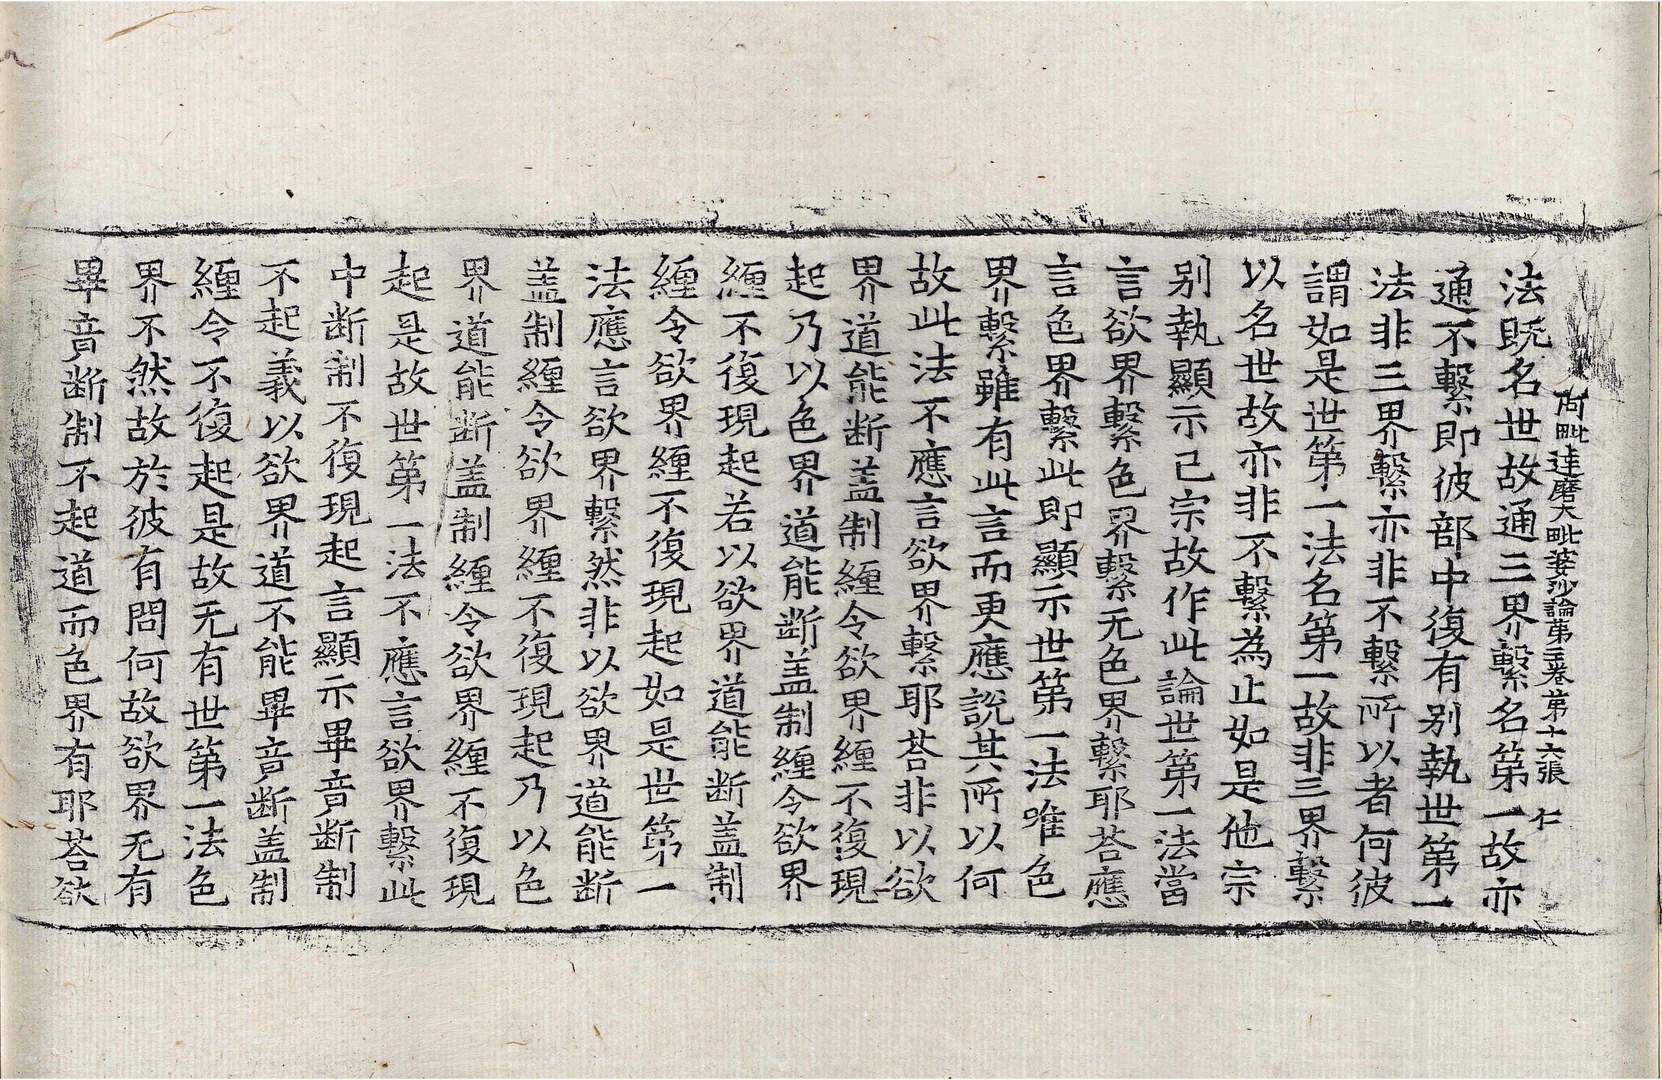 阿毗達磨大毗婆沙論第三卷 第十六張 仁
法既名世故通三界繫名第一故亦
通不繫即彼部中復有别執世第一
法非三界繫亦非不繫所以者何彼
謂如是世第一法名第一故非三界繫
以名世故亦非不繫為止如是他宗
别執顯示己宗故作此論世第一法當
言欲界繫色界繫无色界繫耶荅應
言色界繫此即顯示世第一法唯色
界繫雖有此言而更應說其所以何
故此法不應言欲界繫耶荅非以欲
界道能断盖制纏令欲界纏不復現
起乃以色界道能断盖制纏令欲界
纏不復現起若以欲界道能断盖制
纏令欲界纏不復現起如是世第一
法應言欲界繫然非以欲界道能断
盖制纏令欲界纏不復現起乃以色
界道能断盖制纏令欲界纏不復現
起是故世第一法不應言欲界繫此
中断制不復現起言顯示畢竟断制
不起義以欲界道不能畢竟断盖制
纏令不復起是故无有世第一法色
界不然故於彼有問何故欲界无有
畢竟断制不起道而色界有耶荅欲